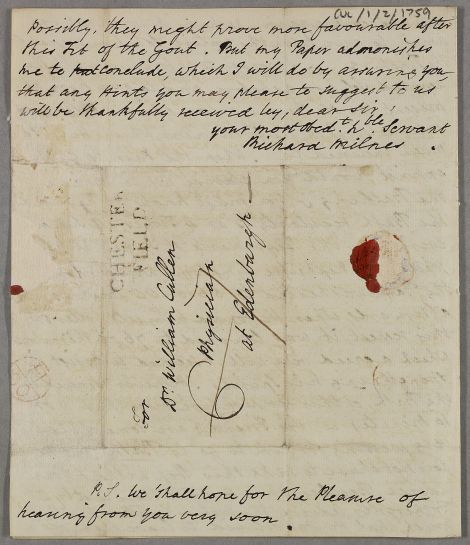 CUL/1/2/1759
Possibly, they might prove more favourable after
this Fit of the Gout. But my Paper admonishes
me to conclude, which I will do by assuring you
that any Hints you may please to suggest to us
will be thankfully received by, dear Sir,
your most obedt. hble Servant
Richard Milnes.
CHESTER
FIELD
For
Dr. William Cullen
Physician
at Edenburgh
6
P.S. We shall hope for the Pleasure of
hearing from you very soon.